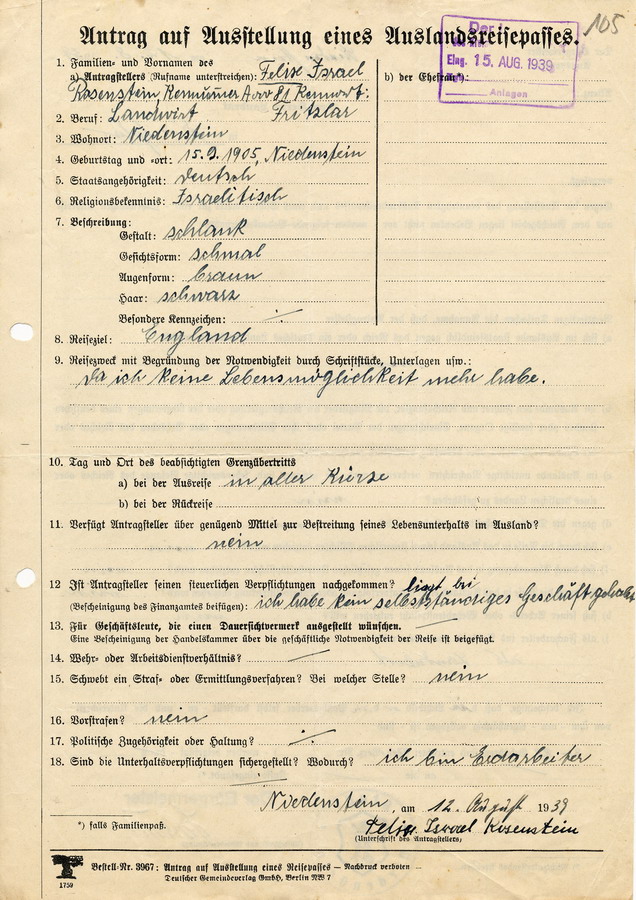 105
Antrag auf Ausstellung eines Auslandsreisepasses.
Eing. 15. AUG. 1939
Anlagen
1. Familien- und Vornamen des
a) Antragstellers (Rufname unterstreichen): Felix Israel
b) der Ehefrau*):
Rosenstein, Kennummer A 00481 Kennort:
2. Beruf: Landwirt Fritzlar
3. Wohnort: Niedenstein
4. Geburtstag und =ort: 15.9.1905, Niedenstein
5. Staatsangehörigkeit: deutsch
6. Religionsbekenntnis: Israelitisch
7. Beschreibung:
Gestalt: schlank
Gesichtsform: schmal
Augenform: braun
Haar: schwarz
Besondere Kennzeichen: ·/·
8. Reiseziel: England
9. Reisezweck mit Begründung der Notwendigkeit durch Schriftstücke, Unterlagen usw.:
Da ich keine Lebensmöglichkeit mehr habe.
10. Tag und Ort des beabsichtigten Grenzübertritts
a) bei der Ausreise in aller Kürze
b) bei der Rückreise
11. Verfügt Antragsteller über genügend Mittel zur Bestreitung seines Lebensunterhalts im Ausland?
nein
12 Ist Antragsteller seinen steuerlichen Verpflichtungen nachgekommen? liegt bei
(Bescheinigung des Finanzamtes beifügen): ich habe kein selbstständiges Geschäft gehabt
13. Für Geschäftsleute, die einen Dauersichtvermerk ausgestellt wünschen. —
Eine Bescheinigung der Handelskammer über die geschäftliche Notwendigkeit der Reise ist beigefügt.
14. Wehr- oder Arbeitsdienstverhältnis? —
15. Schwebt ein Straf- oder Ermittlungsverfahren? Bei welcher Stelle? nein
16. Vorstrafen? nein
17. Politische Zugehörigkeit oder Haltung? ·/·
18. Sind die Unterhaltsverpflichtungen sichergestellt? Wodurch? ich bin Erdarbeiter
Niedenstein, am 12. August 1939
Felix Israel Rosenstein
(Unterschrift des Antragstellers)
*) falls Familienpaß.
1759
Bestell-Nr. 3967: Antrag auf Ausstellung eines Reisepasses — Nachdruck verboten —
Deutscher Gemeindeverlag GmbH, Berlin NW 7